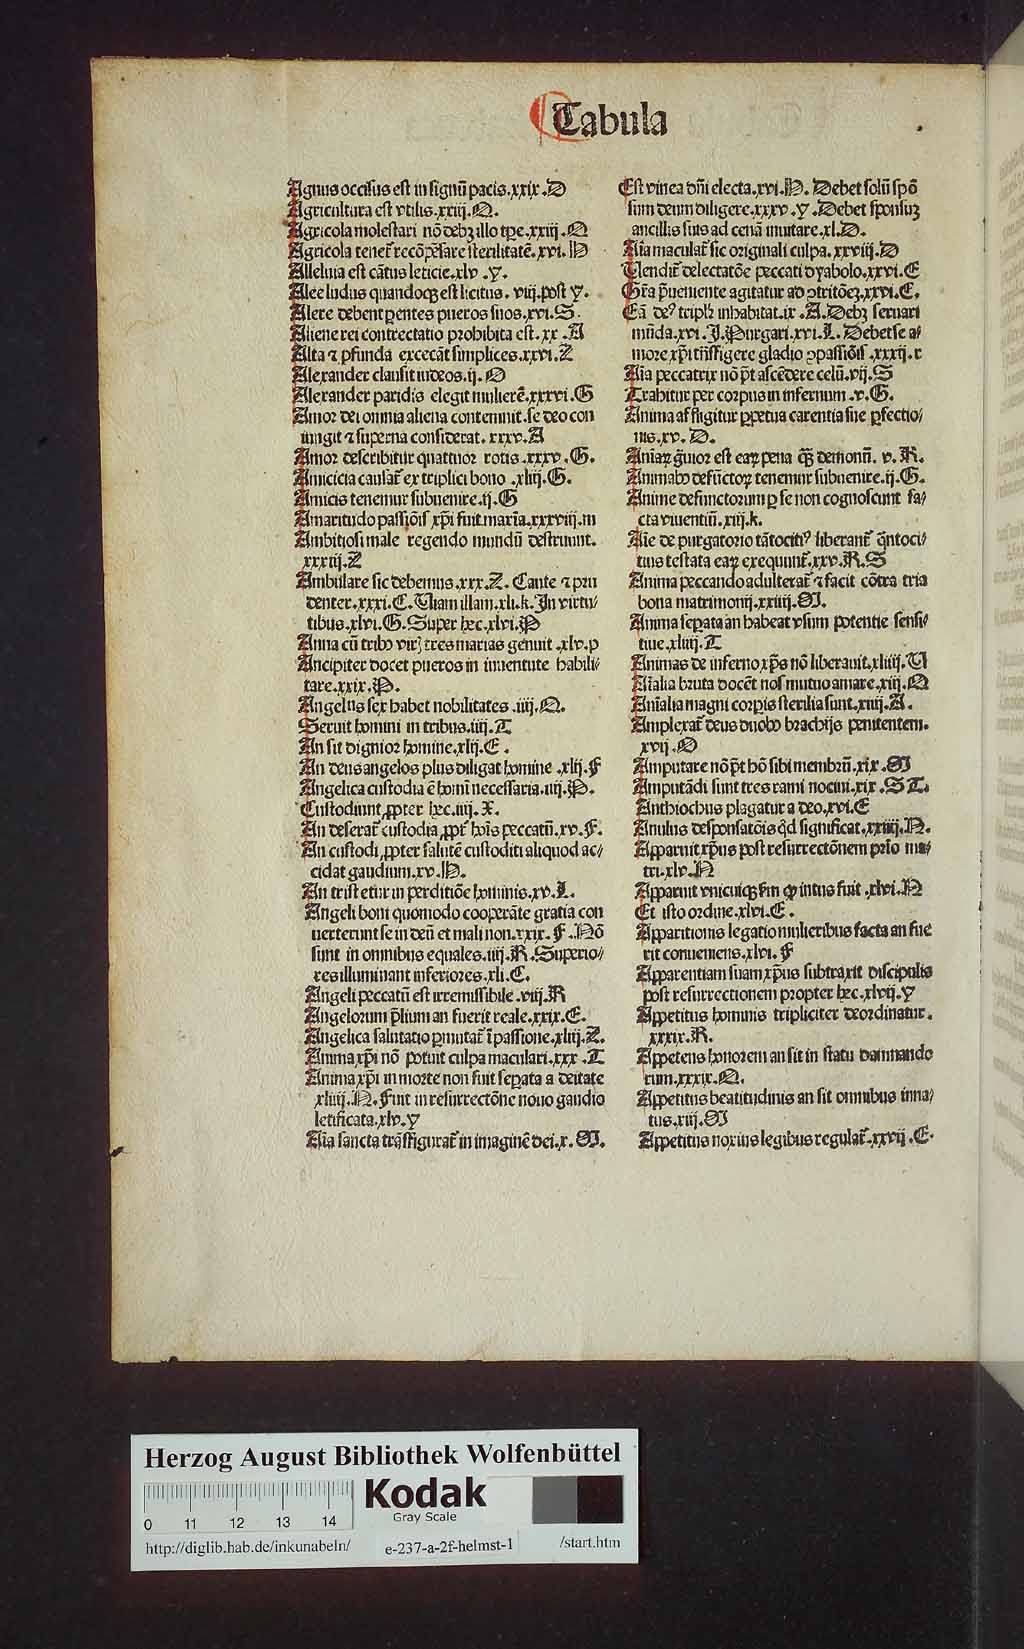 Tabula
Agnus occisus est in signū pacis.xxix.D
Agricultura est vtilis.xxiij.Q.
Agricola molestari nō debꝫ illo tꝑe.xxiij.Q
Agricola tenet᷑ recōpēsare sterilitatē.xvi.H
Alleluia est cātus leticie.xlv.y.
Alee ludus quandoqꝫ est licitus. viij.post y.
Alere debent ꝑentes pueros suos.xvi.S.
Aliene rei contrectatio prohibita est.xx.A
Alta ⁊ ꝓfunda excecāt simplices.xxvi.Z
Alexander clausit iudeos.ij.O
Alexander paridis elegit mulierē.xxxvi.G
Amor dei omnia aliena contemnit.se deo con
iungit ⁊ superna considerat. xxxv.A
Amor describitur quattuor rotis.xxxv.G.
Amicicia causat᷑ ex triplici bono.xliij.G.
Amicis tenemur subuenire.ij.G
Amaritudo passiōis xp̄i fuit maxīa.xxxviij.m
Ambitiosi male regendo mundū destruunt.
xxxiij.Z
Ambulare sic debemus.xxx.Z. Caute ⁊ pru
denter.xxxi.C. Uiam illam.xli.k. In virtu/
tibus.xlvi.G. Super hec.xlvi.P
Anna cū tribꝰ viris tres marias genuit.xlv.p
Ancipiter docet pueros in iuuentute habili/
tare.xxix.P.
Angelus sex habet nobilitates.iiij.Q.
Seruit homini in tribus.iiij.T
An sit dignior homine.xlij.E.
An deus angelos plus diligat homine.xlij.F
Angelica custodia ē homī necessaria.iiij.P.
Custodiunt ꝓpter hec.iiij.X.
An deserat᷑ custodia ꝓpt᷑ hoīs peccatū.xv.F.
An custodi ꝓpter salutē custoditi aliquod ac/
cidat gaudium.xv.H.
An tristetur in perditiōe hominis.xv.L.
Angeli boni quomodo cooperāte gratia con
uerterunt se in deū et mali non.xxix.F. Nō
sunt in omnibus equales.iiij.R. Superio/
res illuminant inferiores.xli.C.
Angeli peccatū est irremissibile.viij.R
Angelorum p̄lium an fuerit reale.xxix.E.
Angelica salutatio ꝑmutat᷑ ī passione.xliij.Z.
Anima xp̄i nō potuit culpa maculari.xxx.T
Anima xp̄i in morte non fuit seꝑata a deitate
xliiij.N. Fuit in resurrectōne nouo gaudio
letificata.xlv.y
Aīa sancta trāsfigurat᷑ in imaginē dei.x.M.
Est vinea dn̄i electa.xvi.H. Debet solū spō
sum deum diligere.xxxv.y. Debet sponsuꝫ
ancillis suis ad cenā inuitare.xl.D.
Aīa maculat᷑ sic originali culpa.xxviij.D
Uendit᷑ delectatōe peccati dyabolo.xxvi.E
Gr̄a p̄ueniente agitatur ad ꝯtritōeꝫ.xxvi.E.
Eā deꝰ tripl᷑r inhabitat.ix.A. Debꝫ seruari
mūda.xvi.I. Purgari.xvi.L. Debet se a/
more xp̄i trāsfigere gladio ꝯpassiōis.xxxij.c
Aīa peccatrix nō p̄t ascēdere celū.vij.S
Trahitur per corpus in infernum.v.G.
Anima affligitur ꝑpetua carentia sue ꝑfectio/
nis.xv.D.
Aniaꝝ grauior est eaꝝ pena qꝫ demonū. v.R.
Animabꝰ defūctoꝝ tenemur subuenire.ij.G.
Anime defunctorum ꝑ se non cognoscunt fa/
cta viuentiū.xiij.k.
Aīe de purgatorio tātocitiꝰ liberant᷑ q̄ntoci/
tius testata eaꝝ exequunt᷑.xxv.R.S
Anima peccando adulterat᷑ ⁊ facit cōtra tria
bona matrimonij.xxiiij.M.
Anima seꝑata an habeat vsum potentie sensi/
tiue.xliiij.T
Animas de inferno xp̄s nō liberauit.xliiij.U
Aīalia bruta docēt nos mutuo amare.xiij.Q
Anīalia magni corꝑis sterilia sunt.xiiij.A.
Amplexat᷑ deus duobꝰ brachijs penitentem.
xvij.O
Amputare nō p̄t hō sibi membrū.xix.M
Amputādi sunt tres rami nociui.xix.ST.
Anthiochus plagatur a deo.xvi.E
Anulus desponsatōis qd significat.xxiiij.N.
Apparuit xp̄us post resurrectōnem prīo ma/
tri.xlv.N
Apparuit vnicuiqꝫ ẜm ꝙ intus fuit.xlvi.N
Et isto ordine.xlvi.E.
Apparitionis legatio mulieribus facta an fue
rit conueniens.xlvi.F
Apparentiam suam xp̄us subtraxit discipulis
post resurrectionem propter hec.xlvij.y
Appetitus hominis tripliciter deordinatur.
xxxix.R.
Appetens honorem an sit in statu damnando
rum.xxxix.Q.
Appetitus beatitudinis an sit omnibus inna/
tus.xiij.M
Appetitus noxius legibus regulat᷑.xxvij.E.
Herzog August Bibliothek Wolfenbüttel
Kodak
Gray Scale
0 11 12 13 14
http://diglib.hab.de/inkunabeln/ e-237-a-2f-helmst-1 /start.htm